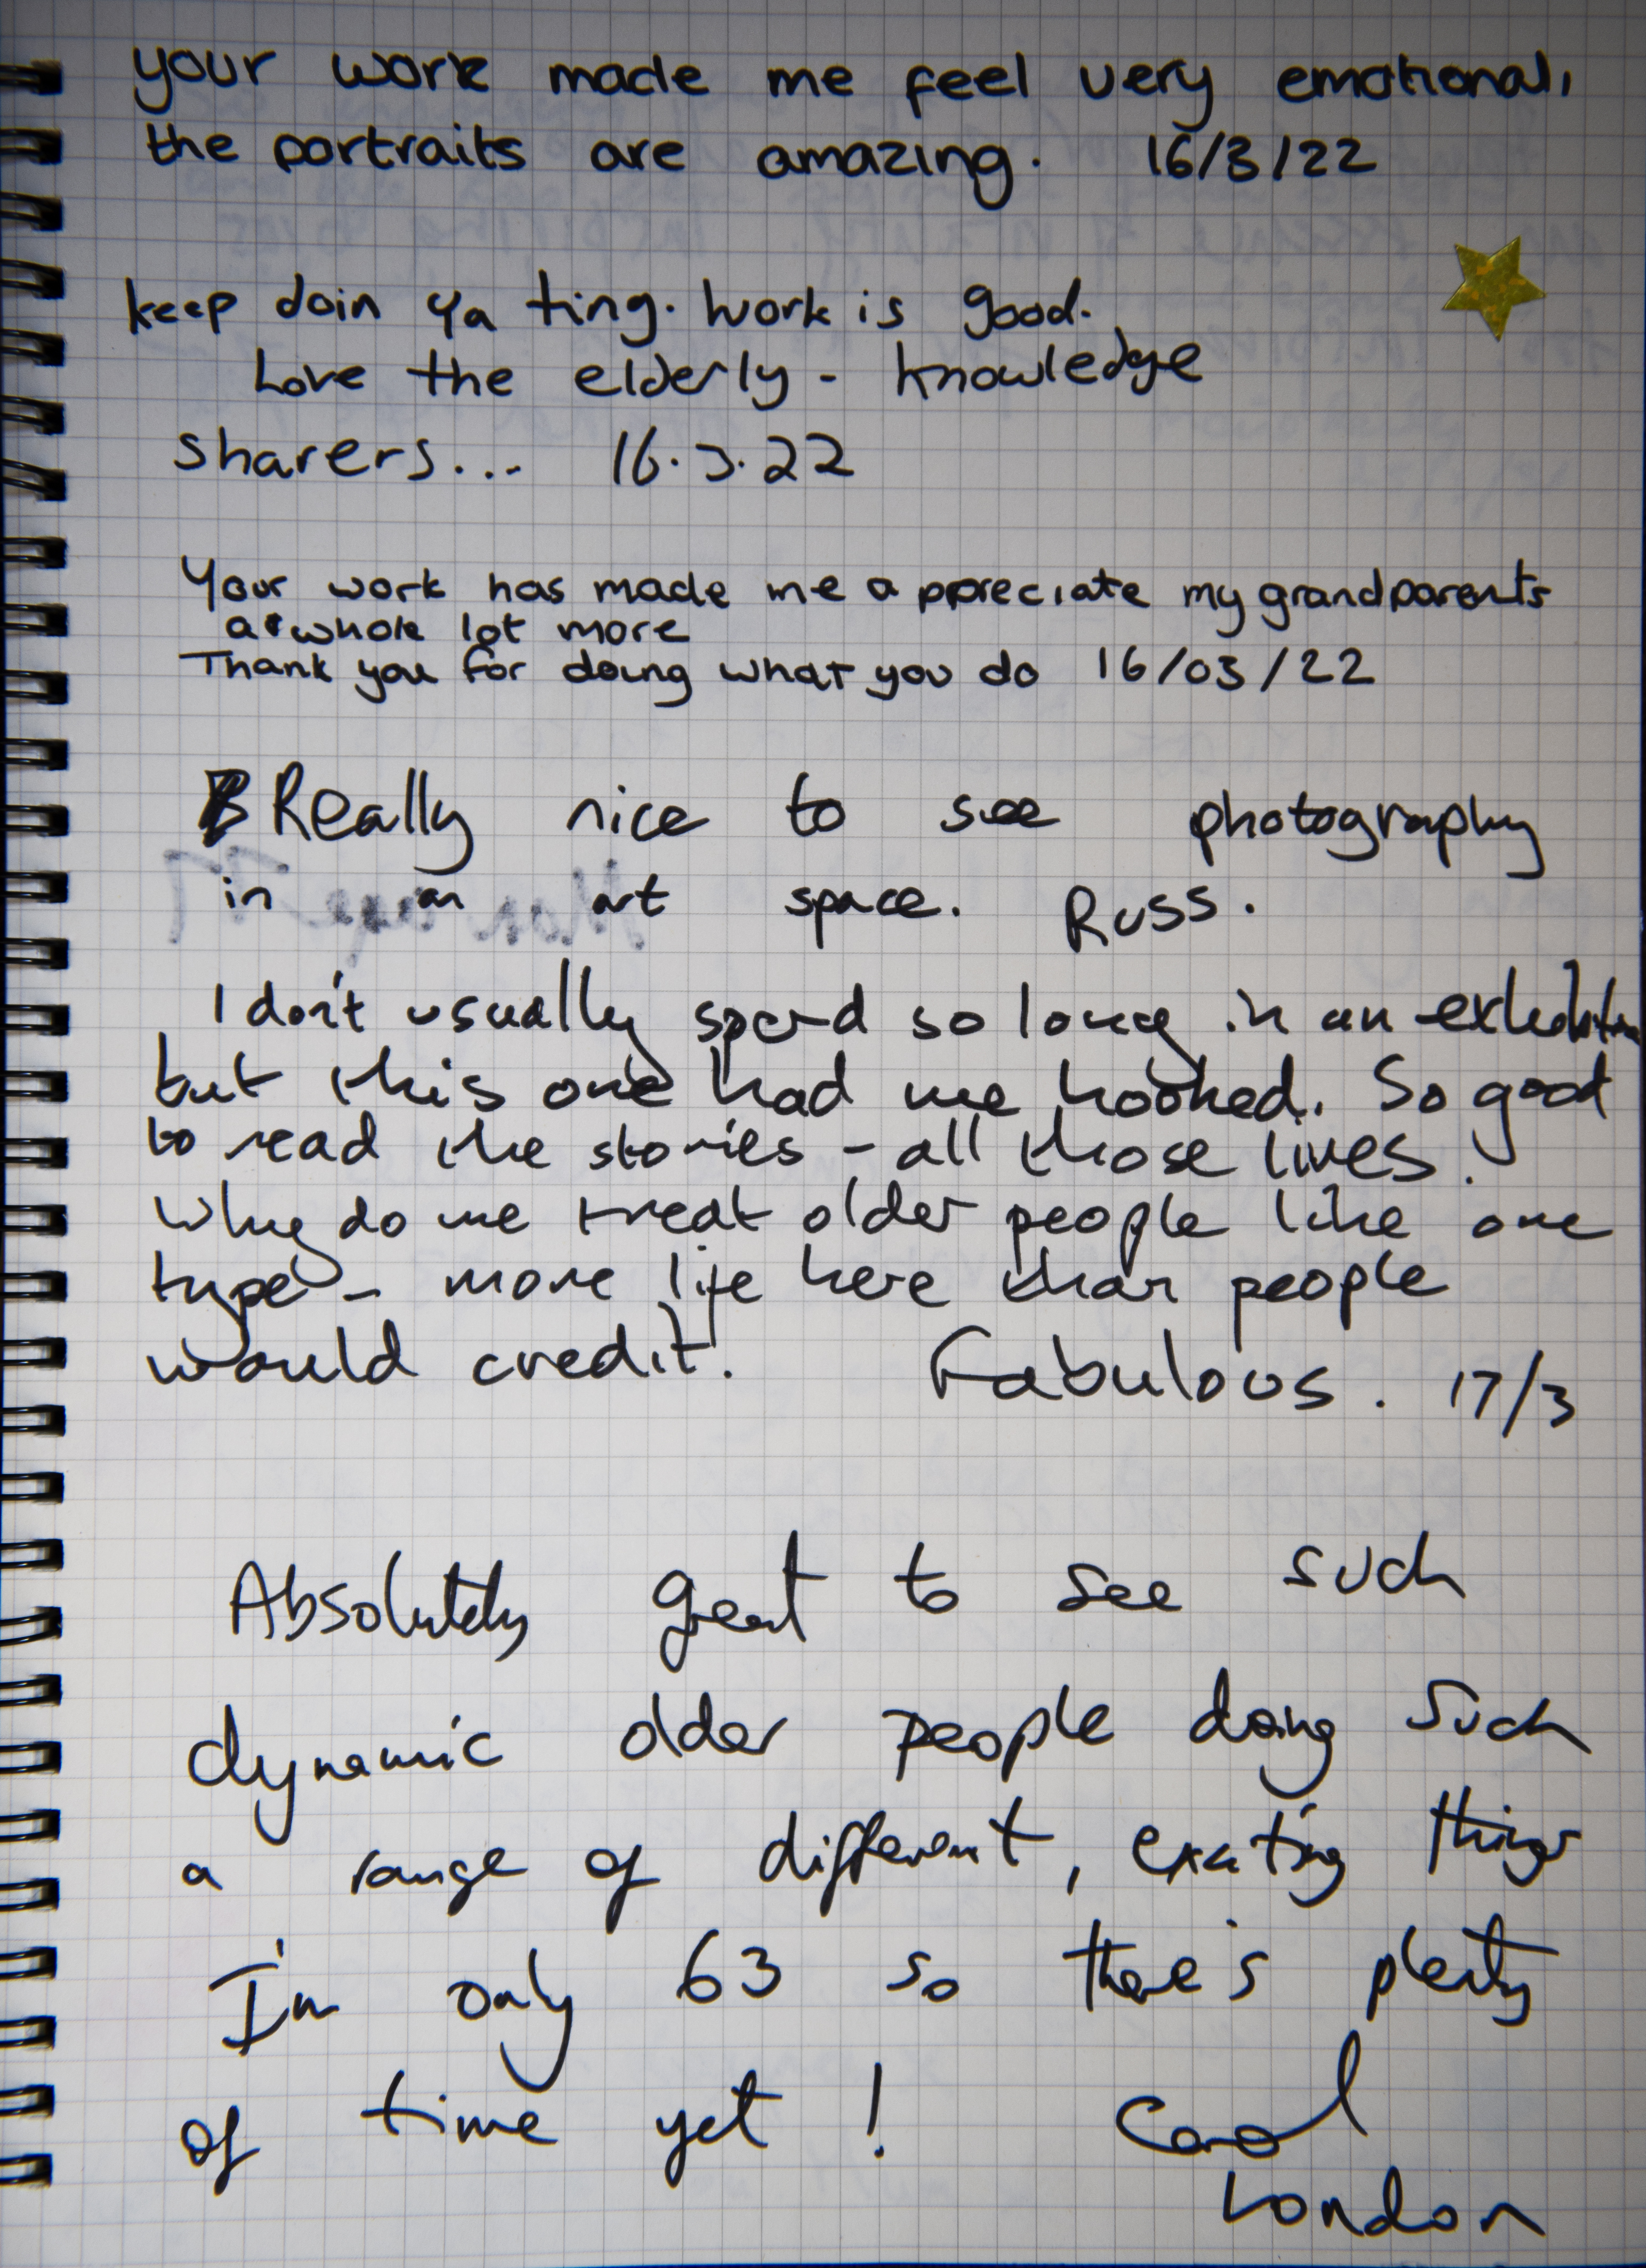 your work made me feel very emotional,
the portraits are amazing. 16/3/22
keep doin ya ting. Work is good.
Love the elderly - knowledge
sharers... 16.3.22
Your work has made me appreciate my grandparents
a whole lot more
Thank you for doing what you do 16/03/22
Really nice to see photography
in an art space. Russ.
I don't usually spend so long in an exhibition
but this one had me hooked. So good
to read the stories - all those lives.
Why do we treat older people like one
type - more life here than people
would credit. Fabulous. 17/3
Absolutely great to see such
dynamic older people doing such
a range of different, exciting things
I'm only 63 so there's plenty
of time yet! Carol
London